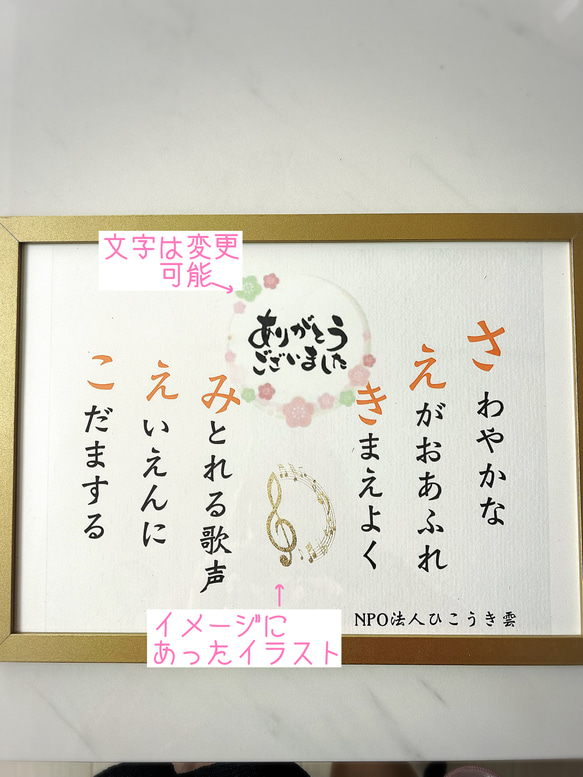 文字は変更
可能
ありがとう
ございました
さわやかな
えがおあふれ
きまえよく
みとれる歌声
えいえんに
こだまする
NPO法人ひこうき雲
イメージに
あったイラスト